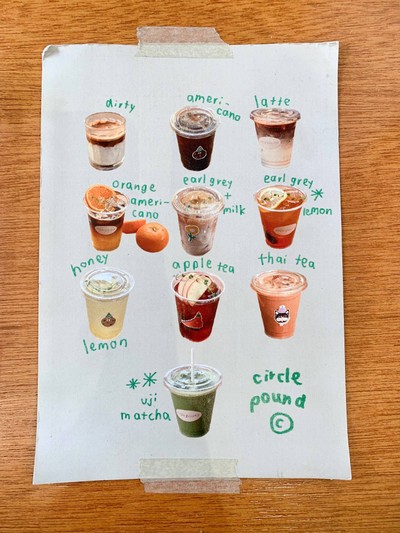 dirty
ameri-
cano
latte
orange
ameri-
cano
earl grey
+
milk
earl grey
*
lemon
honey
lemon
apple tea
thai tea
**
uji
matcha
circle
pound
©